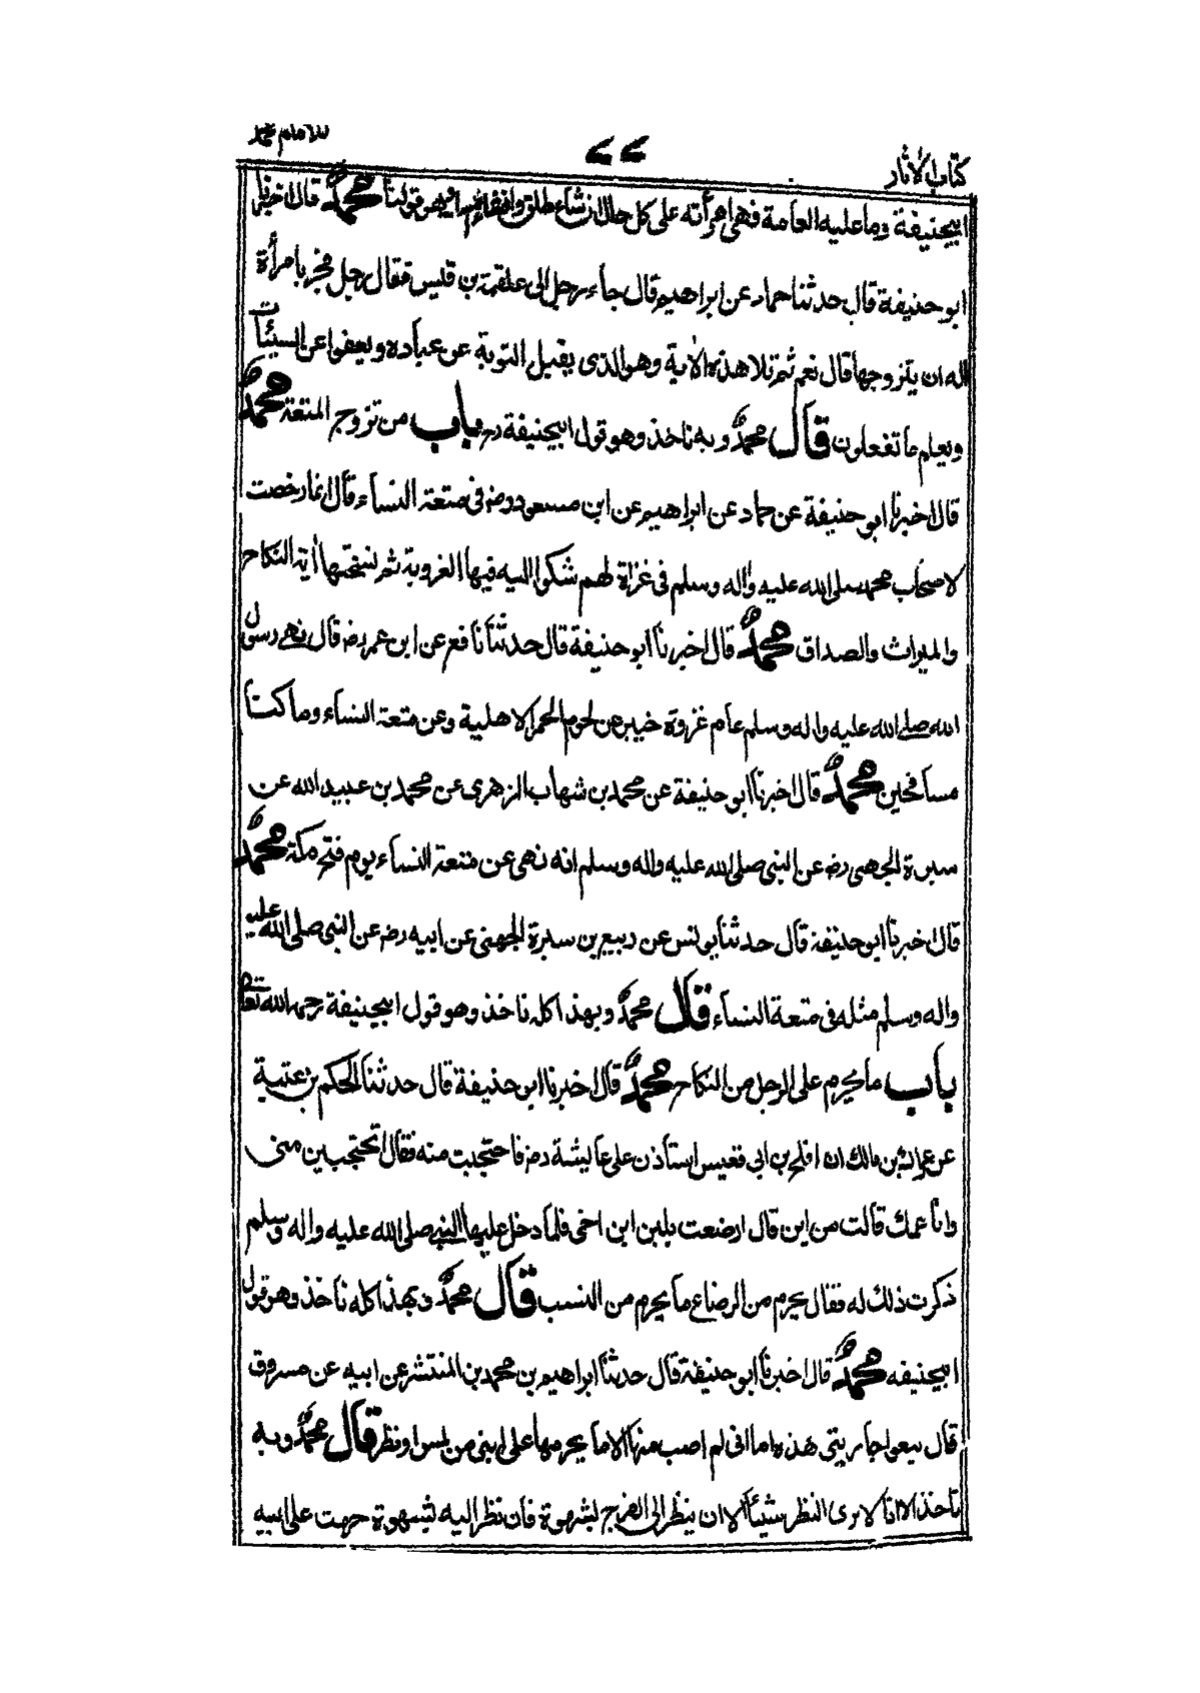 كتاب الآثار ٧٧ للامام محمد
ابيحنيفة وما عليه العامة فهى امرأته على كل حال ان شاء طلق وان شاء امسك وهو قولنا محمد قال اخبرنا
ابو حنيفة قال حدثنا حماد عن ابراهيم قال جاء رجل الى علقمة بن قليس فقال رجل فجر بامرأة
اله ان يتزوجها قال نعم ثم تلا هذه الاية وهو الذى يقبل التوبة عن عباده ويعفوا عن السيئات
ويعلم ما تفعلون قال محمد وبه ناخذ وهو قول ابيحنيفة رح باب من تزوج المتعة محمد
قال اخبرنا ابو حنيفة عن حماد عن ابراهيم عن ابن مسعود رض فى متعة النساء قال انما رخصت
لاصحاب محمد صلى الله عليه واله وسلم فى غزاة لهم شكوا اليه فيها العزوبة ثم نسختها اية النكاح
والميراث والصداق محمد قال اخبرنا ابو حنيفة قال حدثنا نافع عن ابن عمر رض قال نهى رسول
الله صلى الله عليه واله وسلم عام غزوة خيبر عن لحوم الحمر الاهلية وعن متعة النساء وما كنا
مسافحين محمد قال اخبرنا ابو حنيفة عن محمد بن شهاب الزهرى عن محمد بن عبيد الله عن
سبرة الجهنى رض عن النبى صلى الله عليه واله وسلم انه نهى عن متعة النساء يوم فتح مكة محمد
قال اخبرنا ابو حنيفة قال حدثنا يونس عن ربيع بن سبرة الجهنى عن ابيه رض عن النبى صلى الله عليه
واله وسلم مثله فى متعة النساء قال محمد وبهذا كله ناخذ وهو قول ابيحنيفة رحمه الله تعالى
باب ما يحرم على الرجل من النكاح محمد قال اخبرنا ابو حنيفة قال حدثنا الحكم بن عتيبة
عن عراك بن مالك ان افلح بن ابى قعيس استأذن على عائشة رض فاحتجبت منه فقال اتحتجبين منى
وانا عمك قالت من اين قال ارضعت بلبن ابن اخى فلما دخل عليها النبى صلى الله عليه واله وسلم
ذكرت ذلك له فقال يحرم من الرضاع ما يحرم من النسب قال محمد وبهذا كله ناخذ وهو قول
ابيحنيفه محمد قال اخبرنا ابو حنيفة قال حدثنا ابراهيم بن محمد بن المنتشر عن ابيه عن مسروق
قال بيعوا جاريتى هذه اما انى لم اصب منها الا ما يحرمها على ابنى من لمس او نظر قال محمد وبه
ناخذ الا انا لا نرى النظر شيئا الا ان ينظر الى الفرج لشهوة فان نظر اليه لشهوة حرمت على ابيه